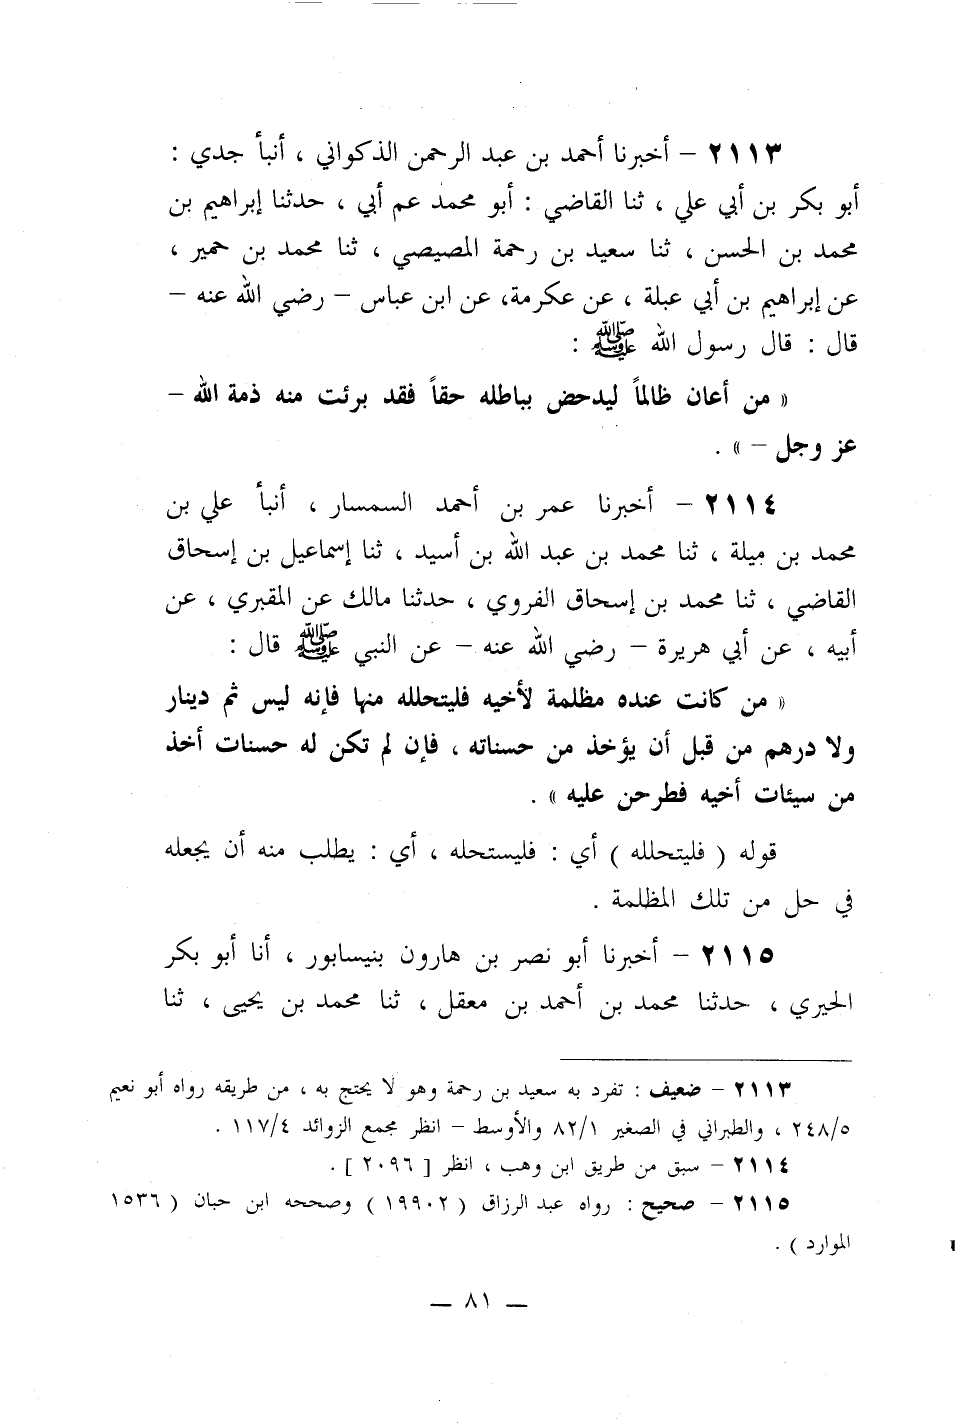 ٢١١٣ – أخبرنا أحمد بن عبد الرحمن الذكواني ، أنبأ جدي :
أبو بكر بن أبي علي ، ثنا القاضي : أبو محمد عم أبي ، حدثنا إبراهيم بن
محمد بن الحسن ، ثنا سعيد بن رحمة المصيصي ، ثنا محمد بن حمير ،
عن إبراهيم بن أبي عبلة ، عن عكرمة، عن ابن عباس – رضي الله عنه –
قال : قال رسول الله ﷺ :
« من أعان ظالماً ليدحض بباطله حقاً فقد برئت منه ذمة الله –
عز وجل – » .
٢١١٤ – أخبرنا عمر بن أحمد السمسار ، أنبأ علي بن
محمد بن ميلة ، ثنا محمد بن عبد الله بن أسيد ، ثنا إسماعيل بن إسحاق
القاضي ، ثنا محمد بن إسحاق الفروي ، حدثنا مالك عن المقبري ، عن
أبيه ، عن أبي هريرة – رضي الله عنه – عن النبي ﷺ قال :
« من كانت عنده مظلمة لأخيه فليتحلله منها فإنه ليس ثم دينار
ولا درهم من قبل أن يؤخذ من حسناته ، فإن لم تكن له حسنات أخذ
من سيئات أخيه فطرحن عليه » .
قوله ( فليتحلله ) أي : فليستحله ، أي : يطلب منه أن يجعله
في حل من تلك المظلمة .
٢١١٥ – أخبرنا أبو نصر بن هارون بنيسابور ، أنا أبو بكر
الحيري ، حدثنا محمد بن أحمد بن معقل ، ثنا محمد بن يحيى ، ثنا
٢١١٣ – ضعيف : تفرد به سعيد بن رحمة وهو لا يحتج به ، من طريقه رواه أبو نعيم
٢٤٨/٥ ، والطبراني في الصغير ٨٢/١ والأوسط – انظر مجمع الزوائد ١١٧/٤ .
٢١١٤ – سبق من طريق ابن وهب ، انظر [ ٢٠٩٦ ] .
٢١١٥ – صحيح : رواه عبد الرزاق ( ١٩٩٠٢ ) وصححه ابن حبان ( ١٥٣٦
الموارد ) .
— ٨١ —